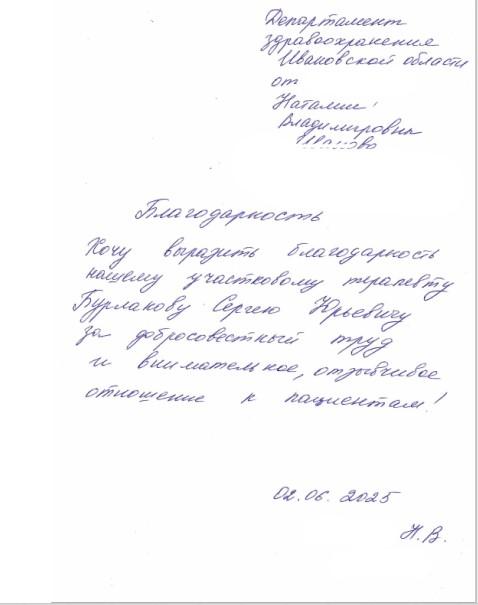 Департамент
здравоохранения
Ивановской области
от
Наталии
Владимировны
Благодарность
Хочу выразить благодарность
нашему участковому терапевту
Бурлакову Сергею Юрьевичу
за добросовестный труд
и внимательное, отзывчивое
отношение к пациентам!
02.06.2025
Н.В.